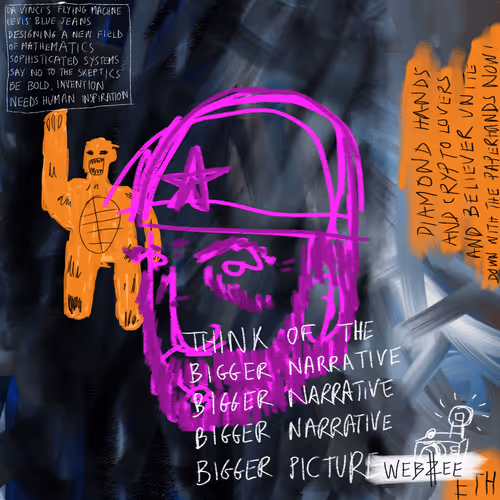 DA VINCI'S FLYING MACHINE
LEVIS' BLUE JEANS
DESIGNING A NEW FIELD
OF MATHEMATICS
SOPHISTICATED SYSTEMS
SAY NO TO THE SKEPTICS
BE BOLD, INVENTION
NEEDS HUMAN INSPIRATION
DIAMOND HANDS
AND CRYPTO LOVERS
AND BELIEVER UNITE
DOWN WITH THE PAPERHANDS NOW!
THINK OF THE
BIGGER NARRATIVE
BIGGER NARRATIVE
BIGGER NARRATIVE
BIGGER PICTURE
ETH